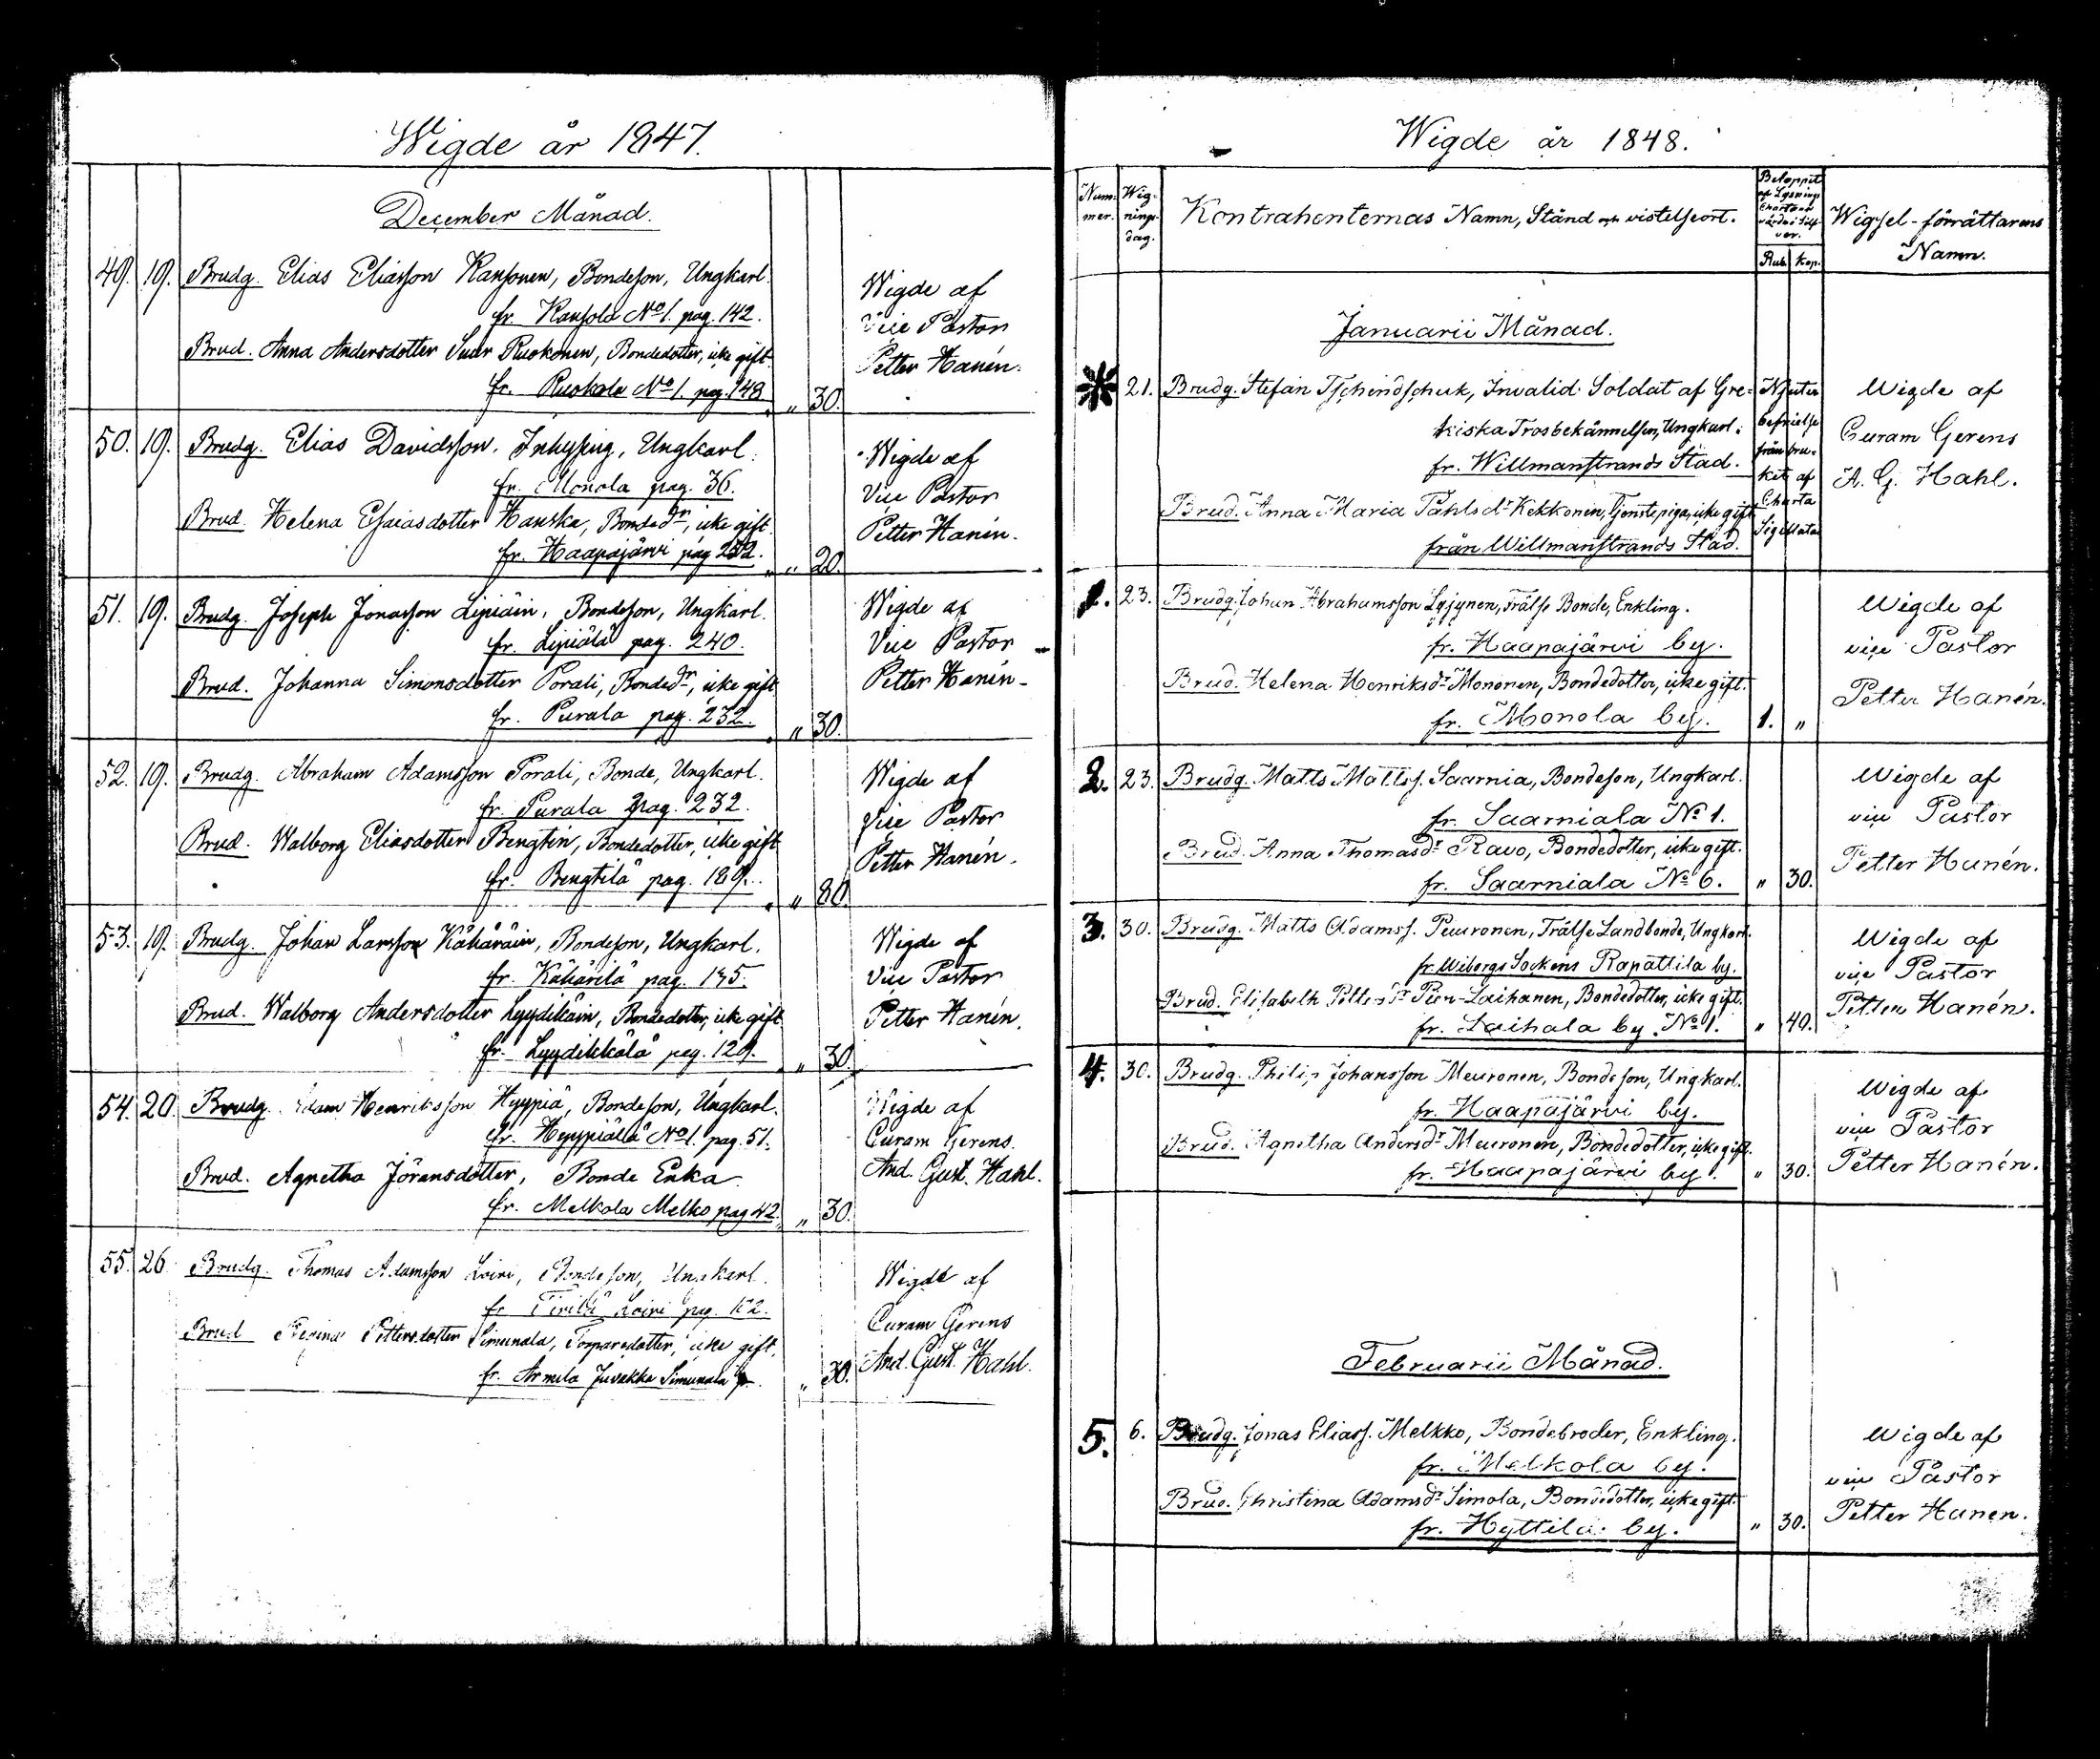 Wigde år 1847.
December Månad.
49. 19. Brudg. Elias Eliasson Kansonen, Bondeson, Ungkarl.
fr. Kansola No 1. pag. 142.
Brud. Anna Andersdotter Suur Ruokonen, Bondedotter, icke gift
fr. Ruokola No 1. pag. 148 " 30.
Wigde af
Vice Pastor
Petter Hanén.
50. 19. Brudg. Elias Davidsson, Inhysing, Ungkarl.
fr. Monola pag. 36.
Brud. Helena Esaiasdotter Hanska, Bondedr, icke gift
fr. Haapajärvi pag 252. " 20.
Wigde af
Vice Pastor
Petter Hanén.
51. 19. Brudg. Joseph Jonasson Lipiäin, Bondeson, Ungkarl.
fr. Lipiälä pag. 240.
Brud. Johanna Simonsdotter Porali, Bondedr, icke gift
fr. Purala pag. 232. " 30.
Wigde af
Vice Pastor
Petter Hanén
52. 19. Brudg. Abraham Adamsson Porali, Bonde, Ungkarl.
fr. Purala pag. 232.
Brud. Walborg Eliasdotter Bengtin, Bondedotter, icke gift
fr. Bengtilä pag. 189. " 80.
Wigde af
Vice Pastor
Petter Hanén.
53. 19. Brudg. Johan Larsson Kähäräin, Bondeson, Ungkarl.
fr. Kähärilä pag.
Brud. Walborg Andersdotter Lyydikäin, Bondedotter, icke gift
fr. Lyydikkälä pag. 129. " 30.
Wigde af
Vice Pastor
Petter Hanén.
54. 20. Brudg. Adam Henriksson Hyypiä, Bondeson, Ungkarl.
fr. Hyypiälä No 1. pag. 51.
Brud. Agnetha Jöransdotter, Bonde Enka
fr. Melkola Melko pag 42. " 30.
Wigde af
Curam Gerens.
And. Gust. Hahl.
55. 26. Brudg. Thomas Adamsson Loiri, Bondeson, Ungkarl.
fr. Tirilä Loiri pag.
Brud Regina Pettersdotter Simunala, Torparedotter, icke gift.
fr. Armila Juvakka Simunala " 30.
Wigde af
Curam Gerens
And. Gust. Hahl.
Wigde år 1848.
Nummer. Wigningsdag. Kontrahenternas Namn, Stånd och vistelseort. Beloppet af Lysnings Chartans värde i Silfver. Rub. Kop. Wigsel-förrättarens Namn.
Januarii Månad.
21. Brudg. Stefan Tschindschuk, Invalid Soldat af Gre- Njuter
kiska Trosbekännelsen, Ungkarl. befrielse
fr. Willmanstrands Stad. från bru-
ket af
Brud. Anna Maria Påhlsdr Kekkonen, Tjenstepiga, icke gift Charta
från Willmanstrands Stad. Sigillata
Wigde af
Curam Gerens
A. G. Hahl.
1. 23. Brudg. Johan Abrahamsson Lyjynen, Frälse Bonde, Enkling.
fr. Haapajärvi by.
Brud. Helena Henriksdr Mononen, Bondedotter, icke gift.
fr. Monola by. 1. "
Wigde af
vice Pastor
Petter Hanén.
2. 23. Brudg. Matts Mattss. Saarnia, Bondeson, Ungkarl.
fr. Saarniala No 1.
Brud. Anna Thomasdr Ravo, Bondedotter, icke gift.
fr. Saarniala No 6. " 30.
Wigde af
vice Pastor
Petter Hanén.
3. 30. Brudg. Matts Adamss. Peuronen, Frälse Landbonde, Ungkarl.
fr. Wiborgs Sockens Rapattila by.
Brud. Elisabeth Pettersdr Pien-Laihanen, Bondedotter, icke gift.
fr. Laihala by. No 1. " 40.
Wigde af
vice Pastor
Petter Hanén.
4. 30. Brudg. Philip Johansson Meuronen, Bondeson, Ungkarl.
fr. Haapajärvi by.
Brud. Agnetha Andersdr Meuronen, Bondedotter, icke gift.
fr. Haapajärvi by. " 30.
Wigde af
vice Pastor
Petter Hanén.
Februarii Månad.
5. 6. Brudg. Jonas Eliass. Melkko, Bondebroder, Enkling.
fr. Melkola by.
Brud. Christina Adamsdr Simola, Bondedotter, icke gift.
fr. Hyttilä by. " 30.
Wigde af
vice Pastor
Petter Hanen.